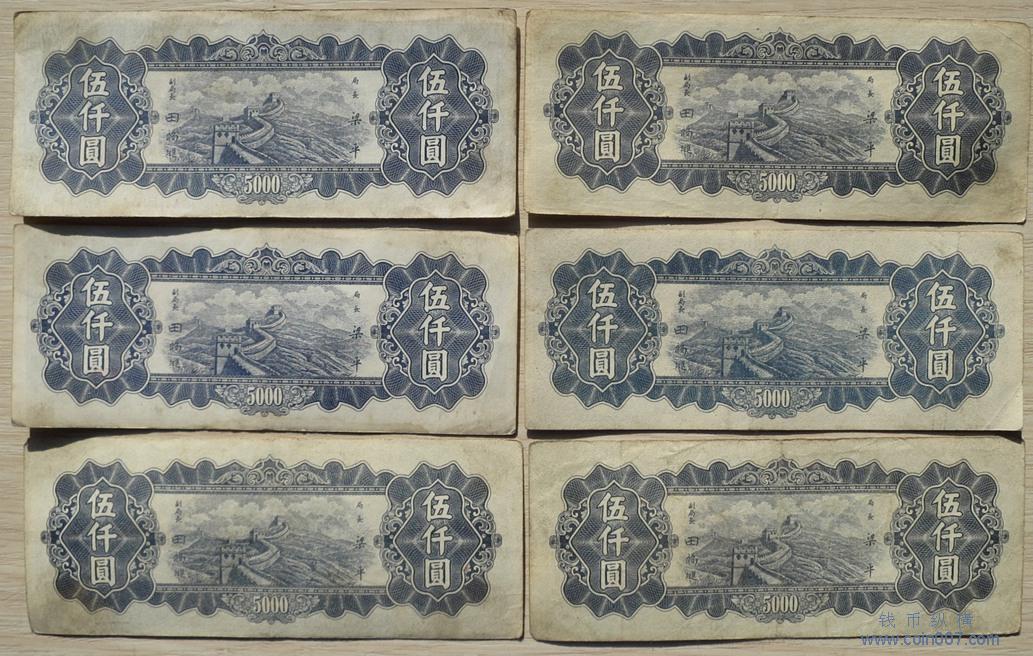 伍仟圓
副局長
田
局長
梁平
伍仟圓
5000
伍仟圓
副局長
田
局長
梁平
伍仟圓
5000
伍仟圓
副局長
田
局長
梁平
伍仟圓
5000
伍仟圓
副局長
田
局長
梁平
伍仟圓
5000
伍仟圓
副局長
田
局長
梁平
伍仟圓
5000
伍仟圓
副局長
田
局長
梁平
伍仟圓
5000
钱币纵横
www.coin007.com